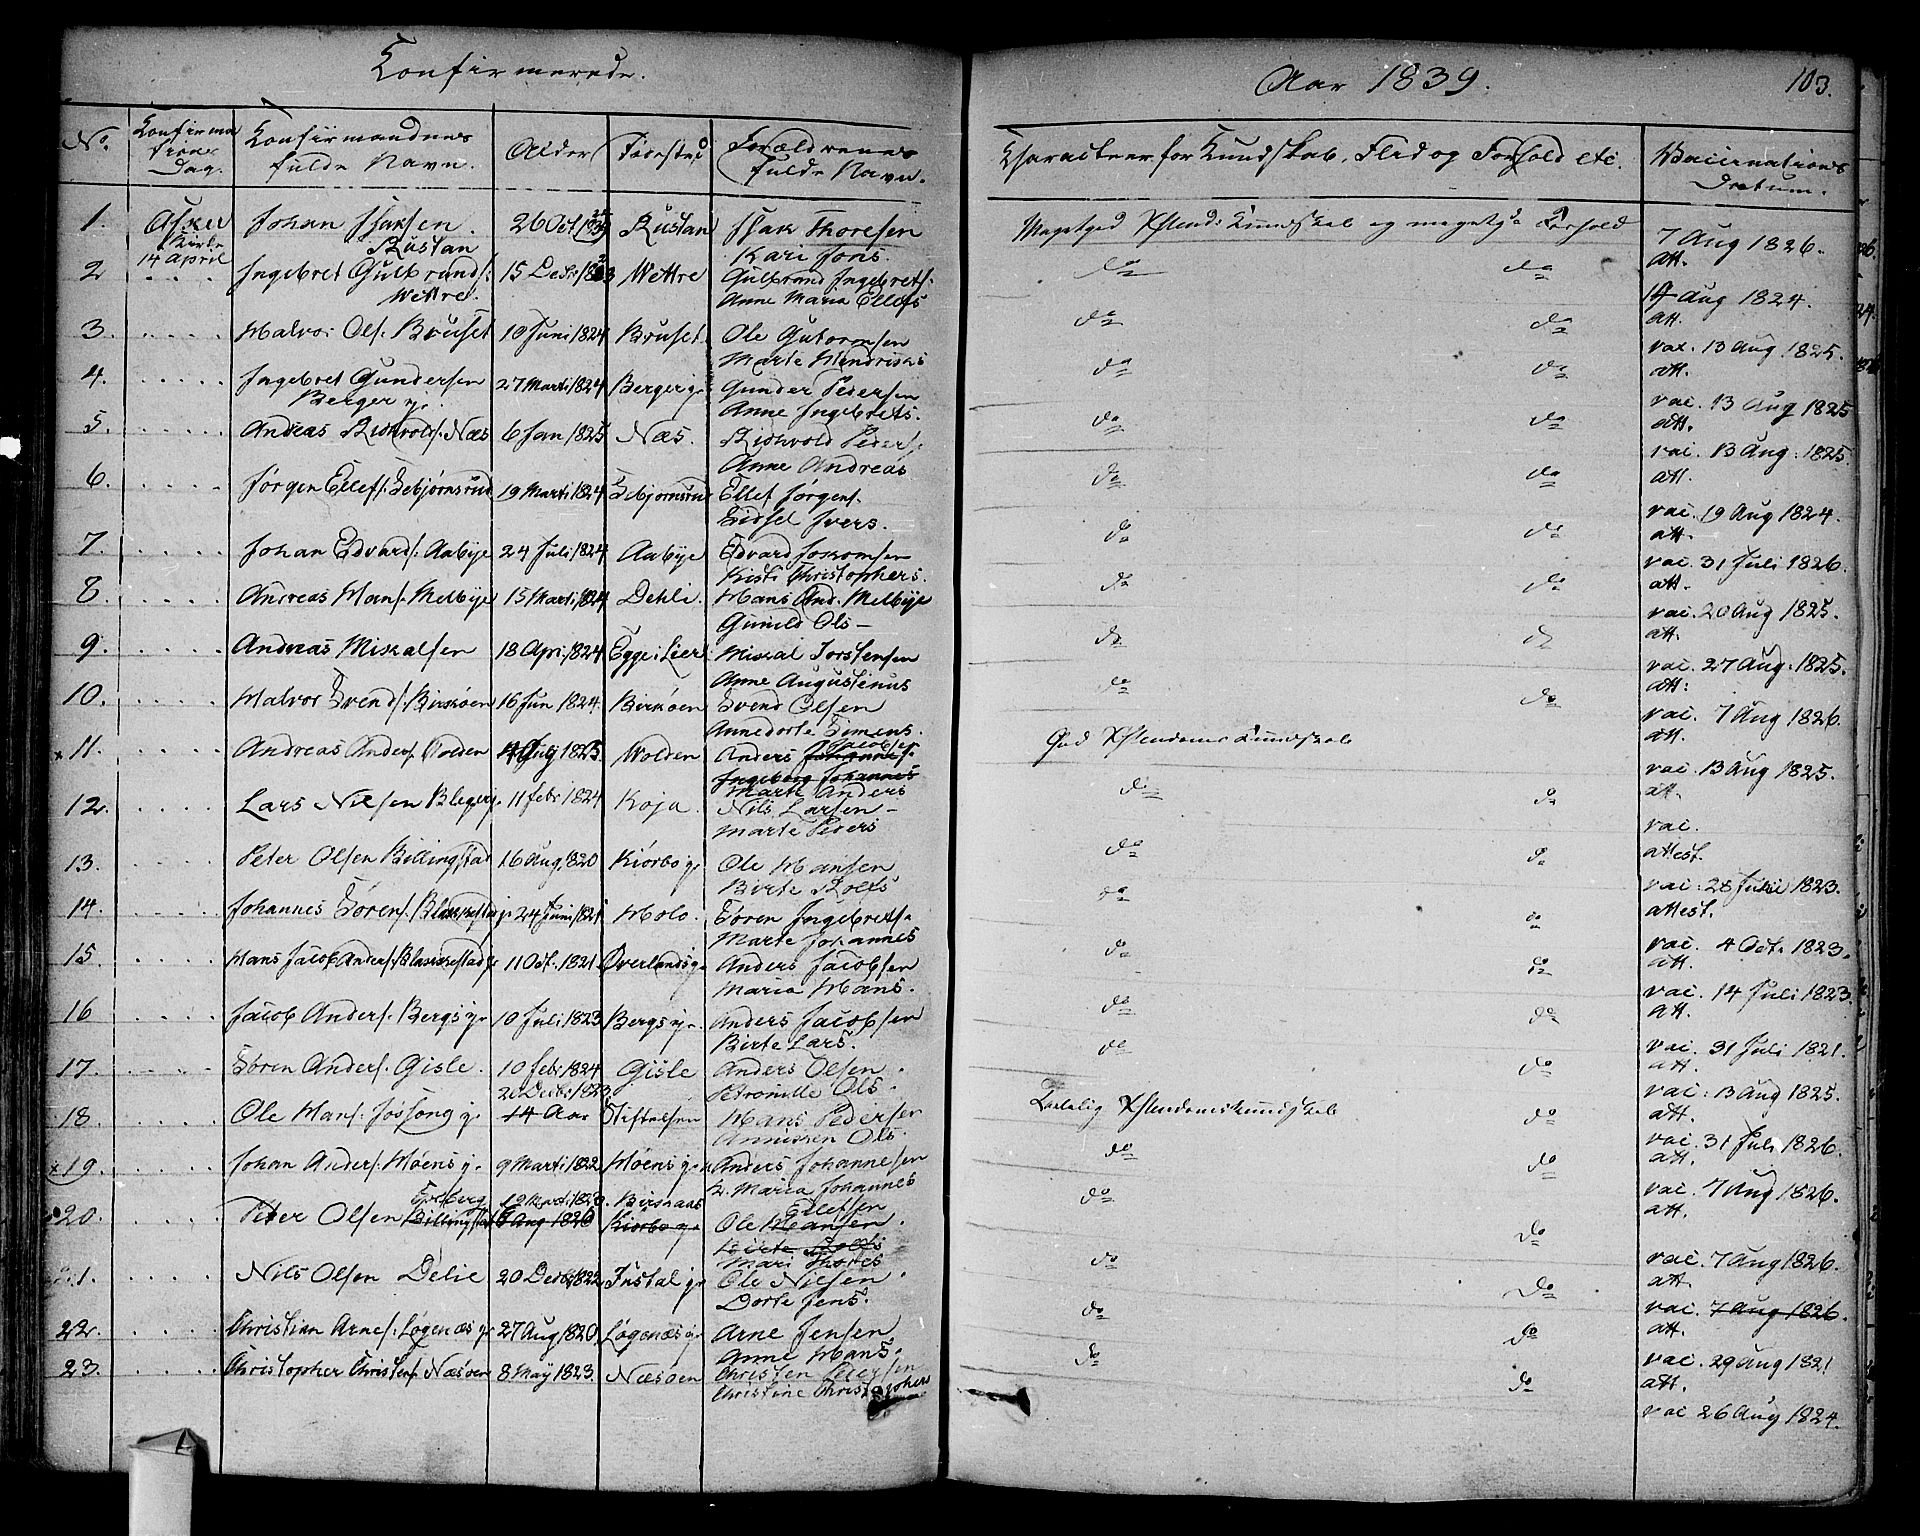 Confirmerede.
Aar 1839.
103.
No. Confirmations Dag. Confirmandnes fulde Navn. Alder Fødested Forældrenes fulde Navn. Characteer for Kundskab, Flid og Forhold etc. Vaccinations Datum.
1. Asker Johan Isaksen 26 Oct Rustan Isak Thoresen
Kirke Rustan Kari Jons. 7 Aug 1826.
2 14 April Ingebret Gulbrands: 15 Decbr Wettre Gulbrand Ingebrets: do do att.
Wettre. Anne Maria Ellefs 14 Aug 1824.
3. Halvor Ols. Bruset 10 Juni 1824 Bruset. Ole Gutormsen do do att.
Marte Hendriks vac. 13 Aug 1825.
4. Ingebret Gundersen 27 Marti 1824 Berger y. Gunder Pedersen do do att.
Berger y. Anne Ingebrets. vac. 13 Aug 1825
5. Andreas Næs 6 Jan 1825 Næs. Peders. do do att.
Anne Andreas vac. 13 Aug. 1825.
6. Jørgen Ellefs. Sebjørnsrud 19 Marti 1824 Sebjornsrud Ellef Jørgens. do do att.
Sidsel Ivers. vac. 19 Aug 1824.
7. Johan Edvards. Aabye 24 Juli 1824 Aabye Edvard do do att.
Kisti Christophers. vac. 31 Juli 1826.
8. Andreas Hans. Melbye 15 Marti 1824 Dehli. Hans And. Melbye do do att.
Gunild Ols – vac. 20 Aug 1825.
9. Andreas Mikalsen 18 Apri. 1824 Egge i Lier Mikal Torstensen do do att.
Anne Augustinus vac. 27 Aug. 1825.
10. Halvor Svends. Birkøen 16 Jun 1824. Birkøen Svend Olsen do do att:
Annedorte Simens. vac. 7 Aug 1826.
11. Andreas Anders. Volden 1825. Wolden Anders Jacobs. Johannes. God Xstendoms Kundskab att.
Ingeborg Johannes vac. 13 Aug 1825.
Marte Anders
12. Lars Nilsen 11 febr 1824 Koja. Nils Larsen – do do att.
Marte Peders vac.
13. Peter Olsen Billingstad 16 Aug 1820 Kiørbo y. Ole Hansen do do attest.
Birte Rolfs vac. 1823.
14. Johannes Sørens. 24 Juni 1821 Holo. Søren Ingebrets. do do attest.
Marte Johannes vac. 4 Oct. 1823.
15. Hans Jacob Anders. Blakkestad y. 11 Oct. 1821. Øverlands y. Anders Jacobsen do do att.
Maria Hans. vac. 14 Juli 1823.
16 Jacob Anders. Bergs y. 10 Juli 1823 Bergs y. Anders Jacobsen do do att.
Birte Lars. vac. 31 Juli 1821.
17. Søren Anders. Gisle. 10 febr 1824 Gisle Anders Olsen do do att.
Petronille Ols. vac. 13 Aug 1825.
18. Ole Hans. Jøssong y. 14 Aar Stiftelsen Hans Pedersen Xstendomskundskab do att.
Anniken Ols. vac. 31 Juli 1826.
19. Johan Anders. Høens y. 9 Marti 1822 Høens y. Anders Johannesen do do att.
Maria Johannes vac. 7 Aug 1826.
20. Peter Olsen Billingstad Aug 1820 Birkaas Kiørbo y. Ole Ellefsen Hansen. do do att.
Birte Rolfs
Mari Thores vac. 7 Aug 1826.
1. Nils Olsen Delie 20 Decbr 1822 y. Ole Nilsen do do att.
Dorte Jens. vac. 7 Aug 1826.
22. Christian Arnes. Løgenæs y. 27 Aug 1820 Løgenæs y. Arne Jensen do do att.
Anne Hans. vac. 29 Aug 1821
23. Christopher Christens. Næsøen 8 May 1823. Næsøen Christen Pedersen do do att.
Christine Christophers vac 26 Aug 1824.